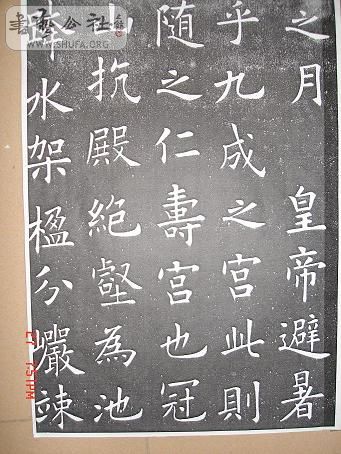 書藝公社
WWW.SHUFA.ORG
之月 皇帝避暑
乎九成之宮此則
随之仁壽宮也冠
山抗殿絶壑為池
跨水架楹分巗竦
7:51PM